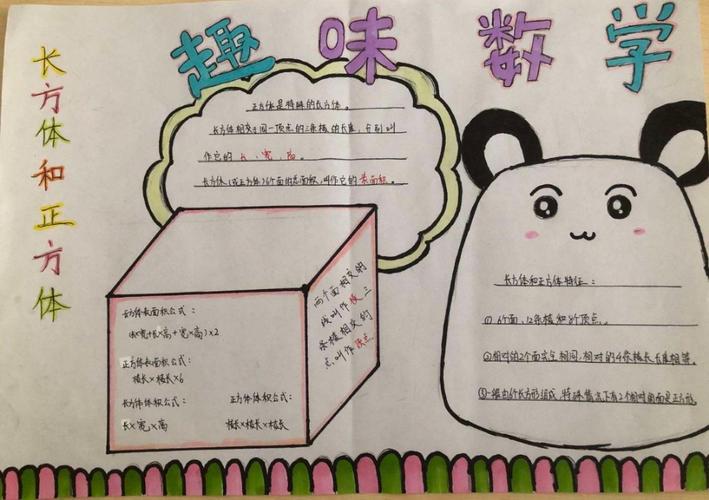 趣味数学
长方体和正方体
正方体是特殊的长方体。
长方体相交于同一顶点的三条棱的长度,分别叫
作它的长、宽、高。
长方体(或正方体)6个面的总面积,叫作它的表面积。
两个面相交的
线叫作棱三
条棱相交的
点叫作顶点
长方体表面积公式:
(长×宽+长×高+宽×高)×2
正方体表面积公式:
棱长×棱长×6
长方体体积公式:
长×宽×高
正方体体积公式:
棱长×棱长×棱长
长方体和正方体特征:
①6个面,12条棱和8个顶点。
②相对的2个面完全相同,相对的4条棱长长度相等。
③一般由6个长方形组成,特殊情况下有2个相对的面是正方形。